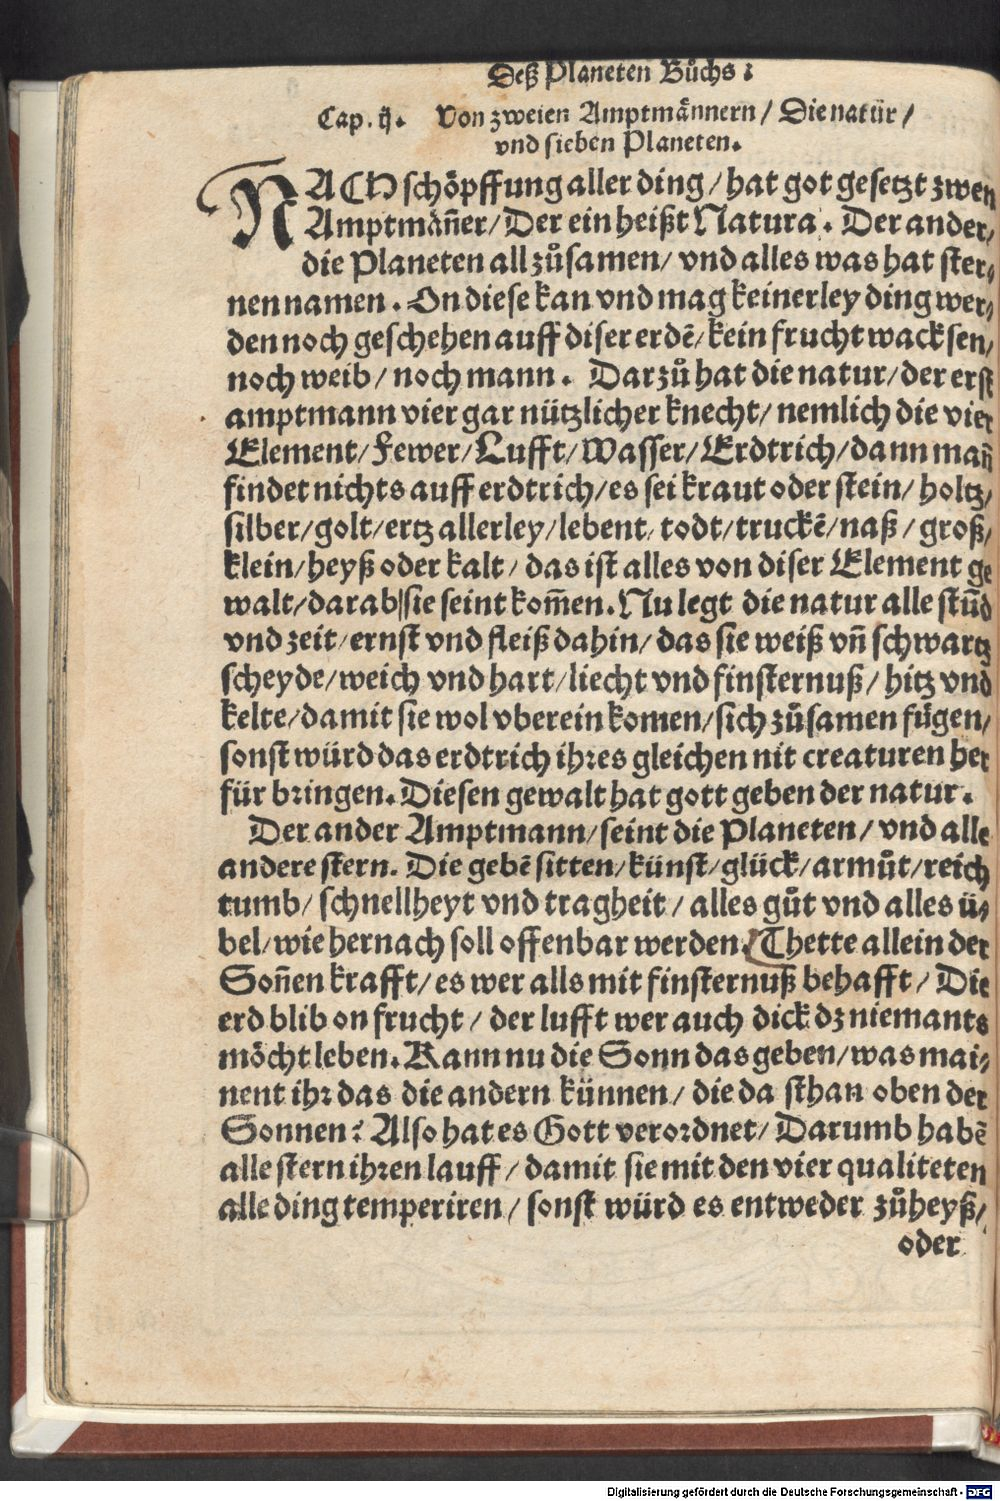 Deß Planeten Bůchs:
Cap. ij. Von zweien Amptmännern / Die natür /
vnd sieben Planeten.
NACH schöpffung aller ding / hat got gesetzt zwen
Amptmän̄er / Der ein heißt Natura. Der ander /
die Planeten all zůsamen / vnd alles was hat ster⸗
nen namen. On diese kan vnd mag keinerley ding wer⸗
den noch geschehen auff diser erdē / kein frucht wacksen /
noch weib / noch mann. Darzů hat die natur / der erst
amptmann vier gar nützlicher knecht / nemlich die vier
Element / Fewer / Lufft / Wasser / Erdtrich / dann man̄
findet nichts auff erdtrich / es sei kraut oder stein / holtz /
silber / golt / ertz allerley / lebent / todt / truckē / naß / groß /
klein / heyß oder kalt / das ist alles von diser Element ge
walt / darab sie seint kom̄en. Nu legt die natur alle stūd
vnd zeit / ernst vnd fleiß dahin / das sie weiß vn̄ schwartz
scheyde / weich vnd hart / liecht vnd finsternuß / hitz vnd
kelte / damit sie wol vberein komen / sich zůsamen fügen /
sonst würd das erdtrich ihres gleichen nit creaturen her
für bringen. Diesen gewalt hat gott geben der natur.
Der ander Amptmann / seint die Planeten / vnd alle
andere stern. Die gebē sitten / künst / glück / armůt / reich
tumb / schnellheyt vnd tragheit / alles gůt vnd alles ü⸗
bel / wie hernach soll offenbar werden. Thette allein der
Son̄en krafft / es wer alls mit finsternuß behafft / Die
erd blib on frucht / der lufft wer auch dick dz niemants
möcht leben. Kann nu die Sonn das geben / was mai⸗
nent ihr das die andern künnen / die da sthan oben der
Sonnen? Also hat es Gott verordnet / Darumb habē
alle stern ihren lauff / damit sie mit den vier qualiteten
alle ding temperiren / sonst würd es entweder zůheyß /
oder
Digitalisierung gefördert durch die Deutsche Forschungsgemeinschaft - DFG